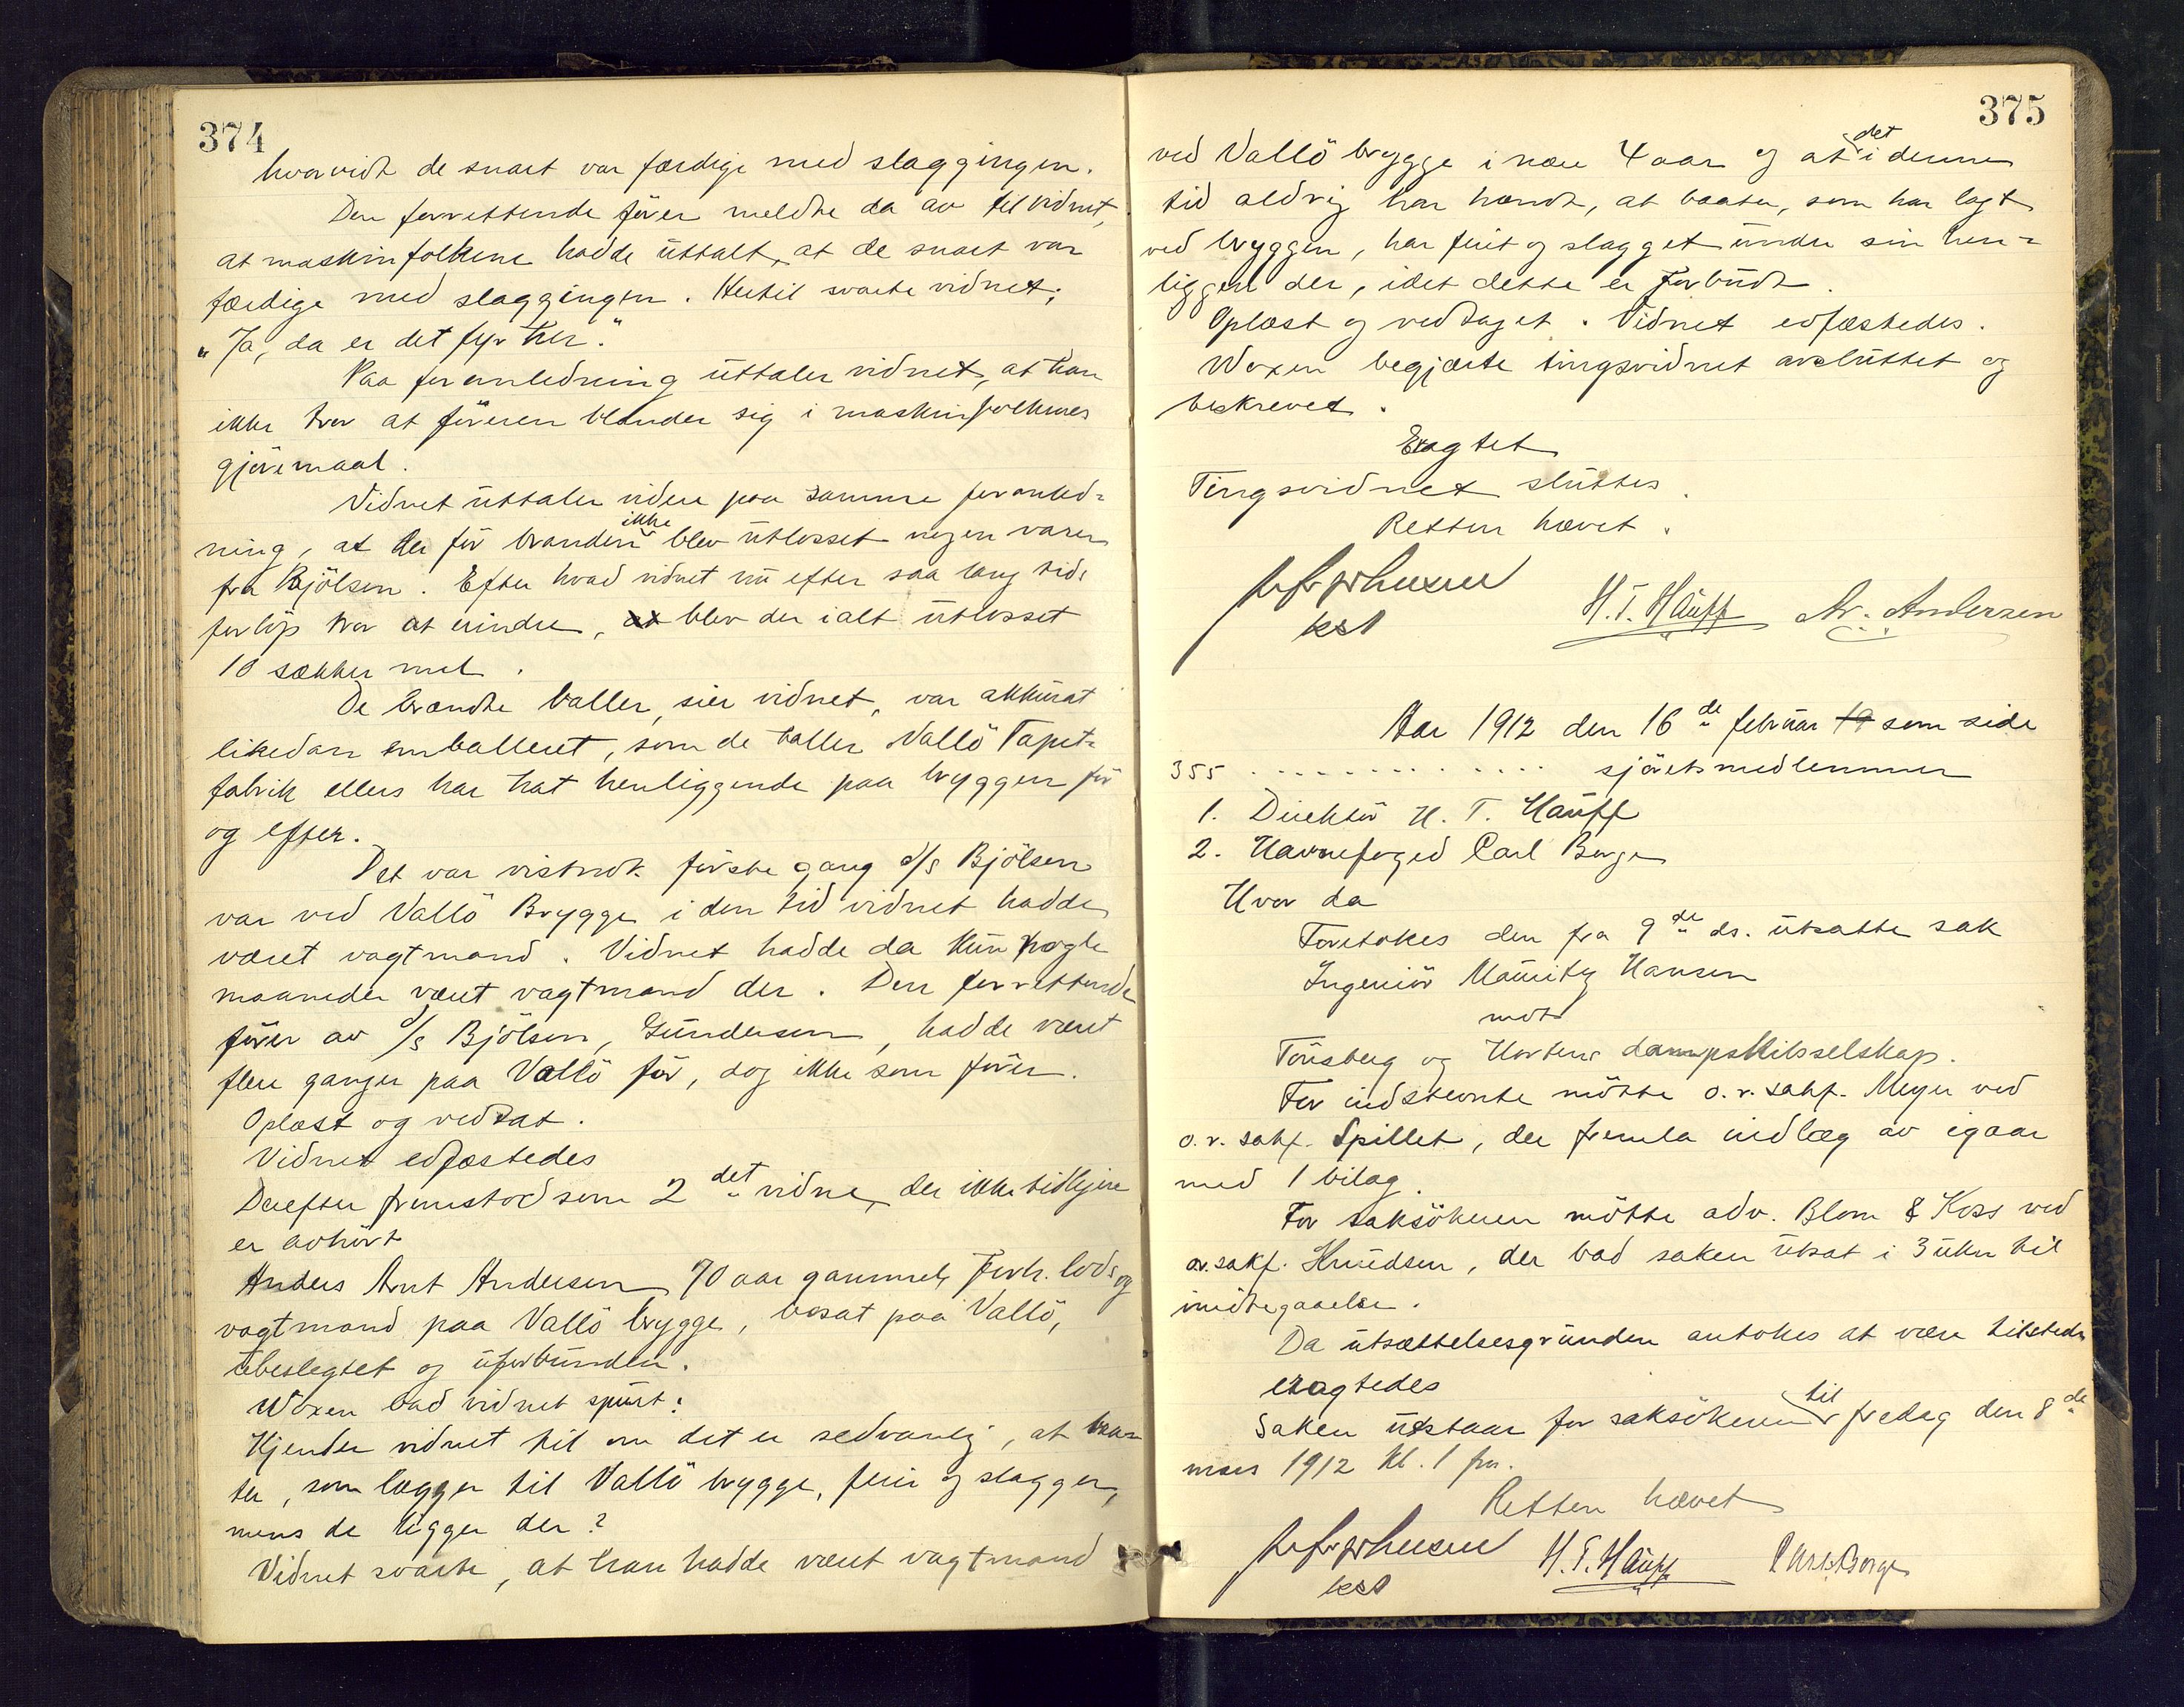 374
hvorvidt de snart var færdige med slaggingen.
Den forrettende förer meldte da av til vidnet,
at maskinfolkene hadde uttalt, at de snart var
færdige med slaggingen. Hertil svarte vidnet;
„Ja, da er det fyr her."
Paa foranledning uttaler vidnet, at han
ikke tror at föreren blander sig i maskinfolkenes
gjöremaal.
Vidnet uttaler videre paa samme foranled=
ning, at der för branden ikke blev utlosset nogen varer
fra Bjölsen. Efter hvad vidnet nu efter saa lang tids
forlöp tror at erindre, blev der ialt utlosset
10 sækker mel.
De brændte baller, sier vidnet, var akkurat
likedan emballeret, som de baller Vallö Tapet=
fabrik ellers har hat henliggende paa bryggen för
og efter.
Det var vistnok förste gang d/s Bjölsen
var ved Vallö Brygge i den tid vidnet hadde
været vagtmand. Vidnet hadde da kun nogle
maaneder været vagtmand der. Den forrettende
förer av d/s Bjölsen, Gundersen, hadde været
flere ganger paa Vallö för, dog ikke som förer.
Oplæst og vedtat.
Vidnet edfæstedes
Derefter fremstod som 2det vidne, der ikke tidligere
er avhört
Anders Arnt Andersen, 70 aar gammel, forh. lods og
vagtmand paa Vallö brygge, bosat paa Vallö,
ubeslegtet og uforbunden.
Woxen bad vidnet spurt:
Kjender vidnet til om det er sedvanlig, at baa=
ter, som lægger til Vallö brygge, feier og slagger,
mens de ligger der?
Vidnet svarte, at han hadde været vagtmand
375
ved Vallö brygge i næe 4 aar og at det i denne
tid aldrig har hændt, at baater, som har lagt
ved bryggen, har feiet og slagget under sin hen=
liggen der, idet dette er forbudt.
Oplæst og vedtaget. Vidnet edfæstedes.
Woxen begjærte tingsvidnet avsluttet og
beskrevet.
Eragtet
Tingsvidnet sluttes.
Retten hævet.
H. T. Hauff Ar. Andersen
kst
Aar 1912 den 16de februar 19 som side
355 . . . . . . . . . . . . sjöretsmedlemmer
1. Direktör H. T. Hauff
2. Havnefoged Carl Borge
Hvor da
Foretokes den fra 9de ds. utsatte sak
Ingeniör Mauritz Hansen
mot
Tönsberg og Hortens dampskibsselskap.
For indstevnte mötte o.r.sakf. Meyer ved
o.r.sakf. Spillet, der fremla indlæg av igaar
med 1 bilag.
For saksökeren mötte adv. Blom & Koss ved
o.r.sakf. Knudsen, der bad saken utsat i 3 uker til
imötegaaelse.
Da utsættelsesgrunden antokes at være tilstede
eragtedes
Saken utstaar for saksökeren til fredag den 8de
mars 1912 kl. 1 fm.
Retten hævet
H. T. Hauff Carl Borge
kst